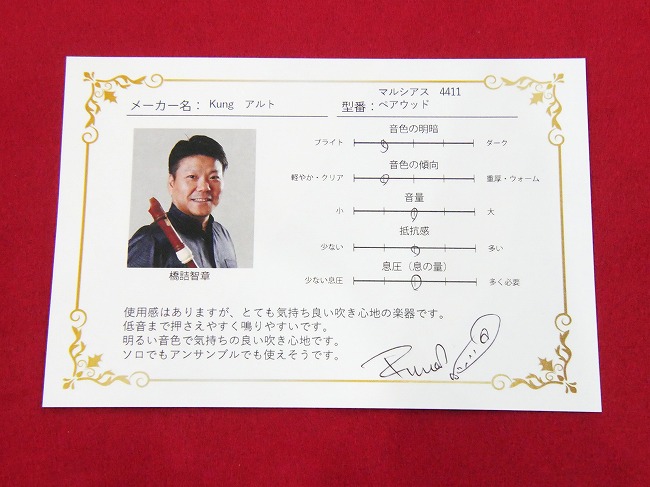 メーカー名： Kung アルト
マルシアス 4411
型番：ペアウッド
音色の明暗
ブライト ダーク
音色の傾向
軽やか・クリア 重厚・ウォーム
音量
小 大
抵抗感
少ない 多い
息圧（息の量）
少ない息圧 多く必要
橋詰智章
使用感はありますが、とても気持ち良い吹き心地の楽器です。
低音まで押さえやすく鳴りやすいです。
明るい音色で気持ちの良い吹き心地です。
ソロでもアンサンブルでも使えそうです。